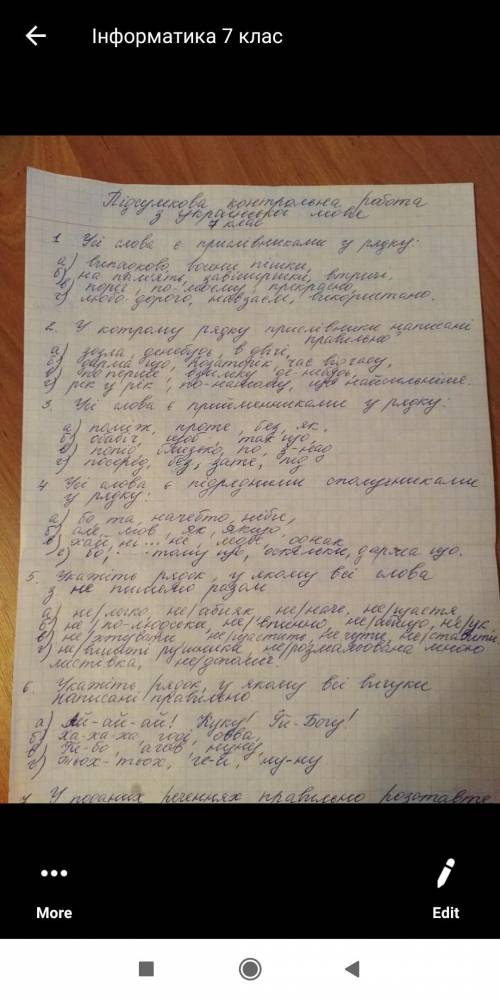 Інформатика 7 клас
Підсумкова контрольна робота
з української мови
7 клас
1 Усі слова є прислівниками у рядку:
а) випадково, восени, пішки,
б) на пам'яті, навшпиньки, втричі,
в) поруч, по-моєму, прекрасно,
г) любо-дорого, невзаєм, використано.
2. У котрому рядку прислівники написані
правильно
а) зозла, денебудь, в двічі,
б) дарма що, позаторік, час від часу,
в) по перше, де-небудь,
г) рік у рік, по-нашому, що найсильніше.
3. Усі слова є прийменниками у рядку:
а) поміж, проте, без, як,
б) обабіч, щоб, так що,
в) попід, близько, по, з-над
г) посеред, без, зате, під
4 Усі слова є підрядними сполучниками
у рядку:
а) бо, та, начебто, ніби,
б) але, мов, як, якщо,
в) хай, ні... ні, мовби, однак
г) бо, тому що, оскільки, дарма що.
5. Укажіть рядок, у якому всі слова
з не пишемо разом
а) не/легко, не/абияк, не/наче, не/щастя
б) не/по-людськи, не/впинно, не/
в) не/хтувати, не/щастить, не чути, не/
г) не/вишиті рушники, не/розмальована мною
листівка,
6. Укажіть рядок, у якому всі вигуки
написані правильно
а) Ай-ай-ай! Куку! Їй-Богу!
б) Ха-ха-ха, годі, овва,
в) Їй-бо, агов, нуну,
г) Тьох-тьох, ге-й, ну-ну
7 У поданих реченнях правильно розставте
More
Edit